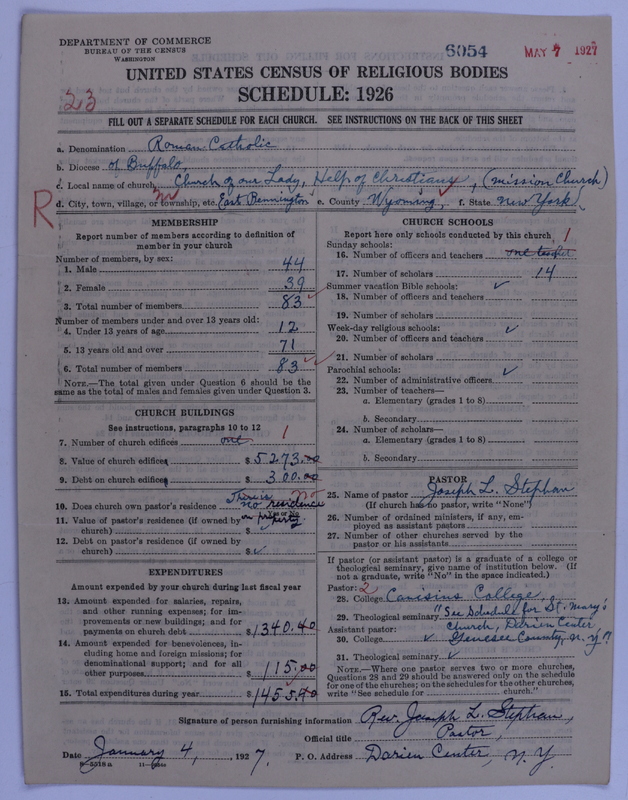 DEPARTMENT OF COMMERCE
BUREAU OF THE CENSUS
WASHINGTON
6054
MAY 7 1927
UNITED STATES CENSUS OF RELIGIOUS BODIES
23
SCHEDULE: 1926
FILL OUT A SEPARATE SCHEDULE FOR EACH CHURCH. SEE INSTRUCTIONS ON THE BACK OF THIS SHEET
a. Denomination Roman Catholic
b. Diocese of Buffalo
c. Local name of church Church of our Lady, Help of Christians, (mission Church)
R
d. City, town, village, or township, etc. East Bennington e. County Wyoming, f. State New York
MEMBERSHIP
Report number of members according to definition of member in your church
Number of members, by sex:
1. Male 44
2. Female 39
3. Total number of members 83
Number of members under and over 13 years old:
4. Under 13 years of age 12
5. 13 years old and over 71
6. Total number of members 83
NOTE.—The total given under Question 6 should be the
same as the total of males and females given under Question 3.
CHURCH BUILDINGS
See instructions, paragraphs 10 to 12
7. Number of church edifices one 1
8. Value of church edifices $ 5273.00
9. Debt on church edifices $ 300.00
10. Does church own pastor's residence There is no residence on property no
Yes or No
11. Value of pastor's residence (if owned by
church) $
12. Debt on pastor's residence (if owned by
church) $ ✓
EXPENDITURES
Amount expended by your church during last fiscal year
13. Amount expended for salaries, repairs,
and other running expenses; for im-
provements or new buildings; and for
payments on church debt $1340.40
14. Amount expended for benevolences, in-
cluding home and foreign missions; for
denominational support; and for all
other purposes $ 115.00
15. Total expenditures during year $1455.40
CHURCH SCHOOLS
Report here only schools conducted by this church
Sunday schools: 1
16. Number of officers and teachers one teacher
17. Number of scholars 14
Summer vacation Bible schools: ✓
18. Number of officers and teachers
19. Number of scholars
Week-day religious schools: ✓
20. Number of officers and teachers
21. Number of scholars
Parochial schools: ✓
22. Number of administrative officers
23. Number of teachers—
a. Elementary (grades 1 to 8)
b. Secondary
24. Number of scholars—
a. Elementary (grades 1 to 8)
b. Secondary
PASTOR
25. Name of pastor Joseph L. Stephan
(If church has no pastor, write "None")
26. Number of ordained ministers, if any, em-
ployed as assistant pastors
27. Number of other churches served by the
pastor or his assistants
If pastor (or assistant pastor) is a graduate of a college or
theological seminary, give name of institution below. (If
not a graduate, write "No" in the space indicated.)
Pastor: 2
28. College Canisius College,
29. Theological seminary "See Schedule for St. Mary's
Assistant pastor: Church, Darien Center
30. College ✓ Genesee County, N.Y."
31. Theological seminary ✓
NOTE.—Where one pastor serves two or more churches,
Questions 28 and 29 should be answered only on the schedule
for one of the churches; on the schedules for the other churches,
write "See schedule for church."
Signature of person furnishing information Rev. Joseph L. Stephan,
Official title Pastor,
Date January 4, 1927. P. O. Address Darien Center, N.Y.